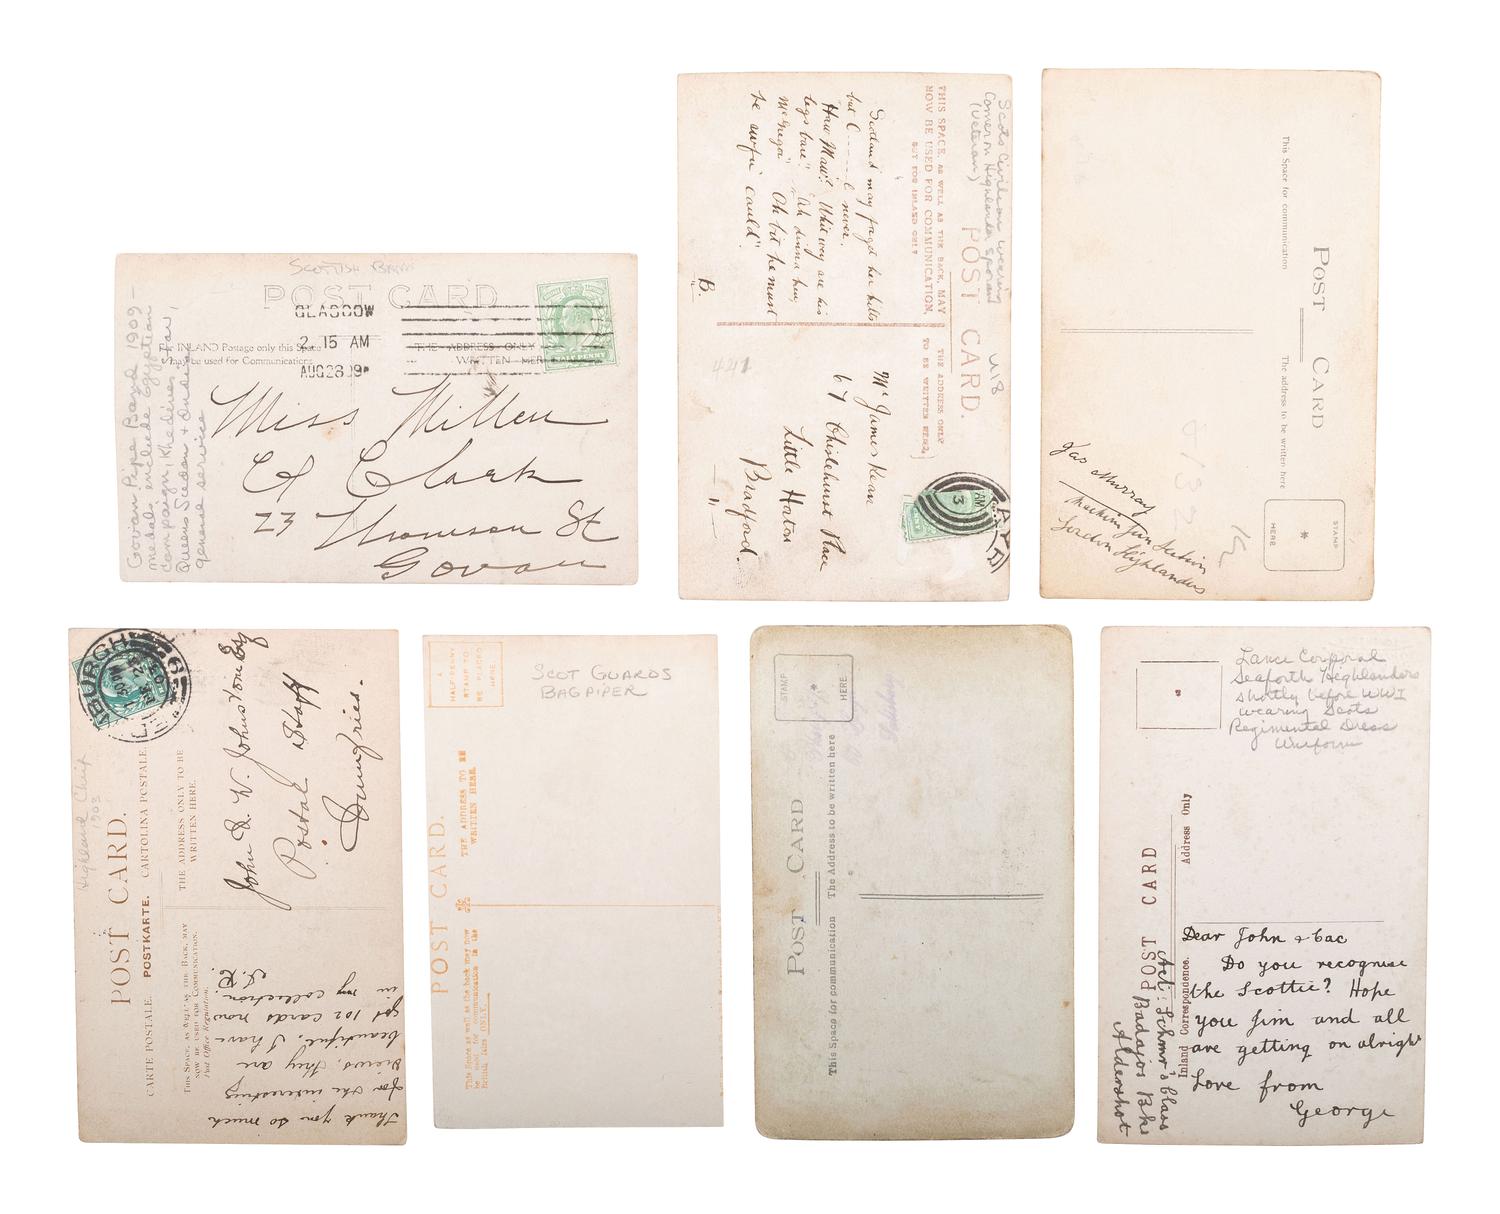 SCOTTISH BAND
POST CARD
GLASGOW
2. 15 AM
AUG 28 09
For INLAND Postage only this Space
may be used for Communication.
THE ADDRESS ONLY
WRITTEN HERE
HALFPENNY
Miss Millen
C/ Clark
23 Thomson St
Govan
Govan Pipe Band 1909 –
medals include Egyptian
campaign, Khedives Star,
Queens Sudan + Indian
general service
Scots Civilian wearing
Cameron Highlander Sporran
(Veteran)
U18
POST CARD.
THIS SPACE, AS WELL AS THE BACK, MAY
NOW BE USED FOR COMMUNICATION,
BUT FOR INLAND ONLY
THE ADDRESS ONLY
TO BE WRITTEN HERE.
Scotland may forget her kilts
but C----l never.
"Haw Maw! Why are his
legs bare" "Ah dinna ken,
McGregor" "Oh but he must
be awfu' cauld".
B.
447
Mr James Kean
67 Chislehurst Place
Little Horton
Bradford.
AM
3
POST CARD
This Space for communication
The address to be written here
STAMP
HERE
Jas Murray
Machine Gun Section
Gordon Highlanders
Highland Chief
1903
POST CARD.
CARTE POSTALE. POSTKARTE. CARTOLINA POSTALE.
THIS SPACE, AS WELL AS THE BACK, MAY
NOW BE USED FOR COMMUNICATION.
Post Office Regulation.
THE ADDRESS ONLY TO BE
WRITTEN HERE.
John D. W. Johnstone Esq
Postal Staff
Dumfries.
Thank you so much
for the interesting
views, they are
beautiful. I have
got 102 cards now
in my collection.
SCOT GUARDS
BAGPIPER
A
HALFPENNY
STAMP TO
BE PLACED
HERE.
POST CARD.
THE ADDRESS TO BE
WRITTEN HERE.
This Space as well as the back may now
be used for communication in the
British Isles ONLY.
POST CARD
STAMP
HERE.
This Space for communication
The Address to be written here
Lance Corporal
Seaforth Highlanders
shortly before WWI
wearing Scots
Regimental Dress
Uniform
POST CARD
Inland Correspondence.
Address Only
Dear John & Cac
Do you recognise
the Scottie? Hope
you Jim and all
are getting on alright
Love from
George
Badajos Bks
Aldershot